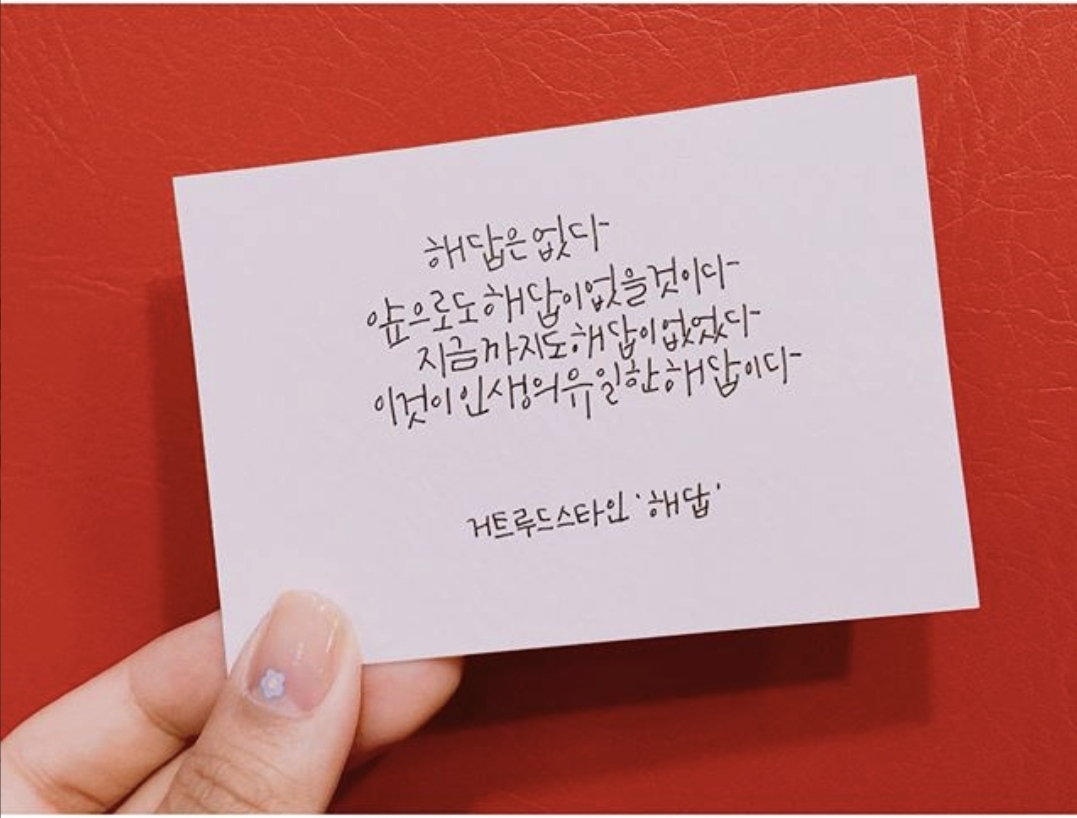 해답은 없다
앞으로도 해답이 없을 것이다
지금까지도 해답이 없었다
이것이 인생의 유일한 해답이다
거트루드 스타인 '해답'